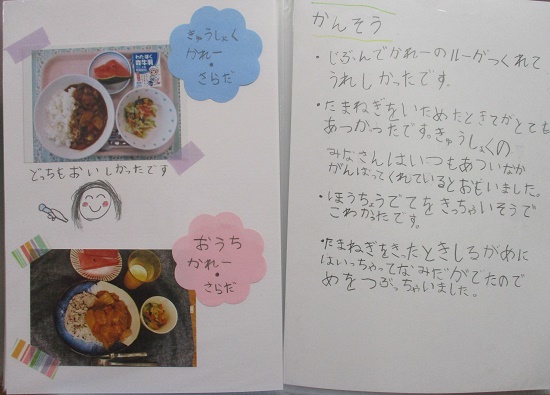 きゅうしょく
かれー
・
さらだ
どっちもおいしかったです
おうち
かれー
・
さらだ
かんそう
・じぶんでかれーのルーがつくれて
うれしかったです。
・たまねぎをいためたときてがとても
あつかったです。きゅうしょくの
みなさんはいつもあついなか
がんばってくれているとおもいました。
・ほうちょうでてをきっちゃいそうで
こわかったです。
・たまねぎをきったときしるがめに
はいっちゃってなみだがでたので
めをつぶっちゃいました。